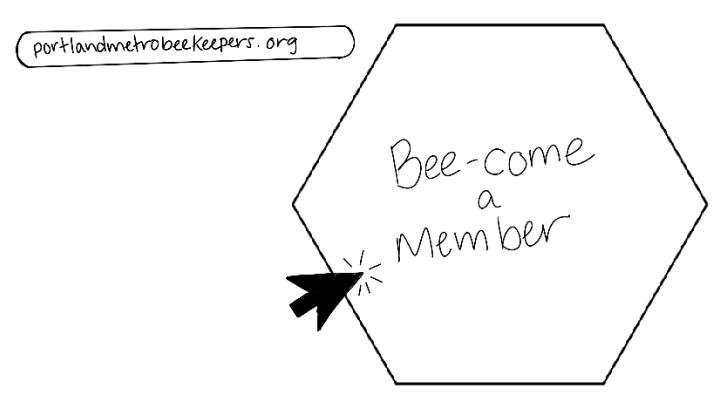 portlandmetrobeekeepers.org
Bee-come
a
Member